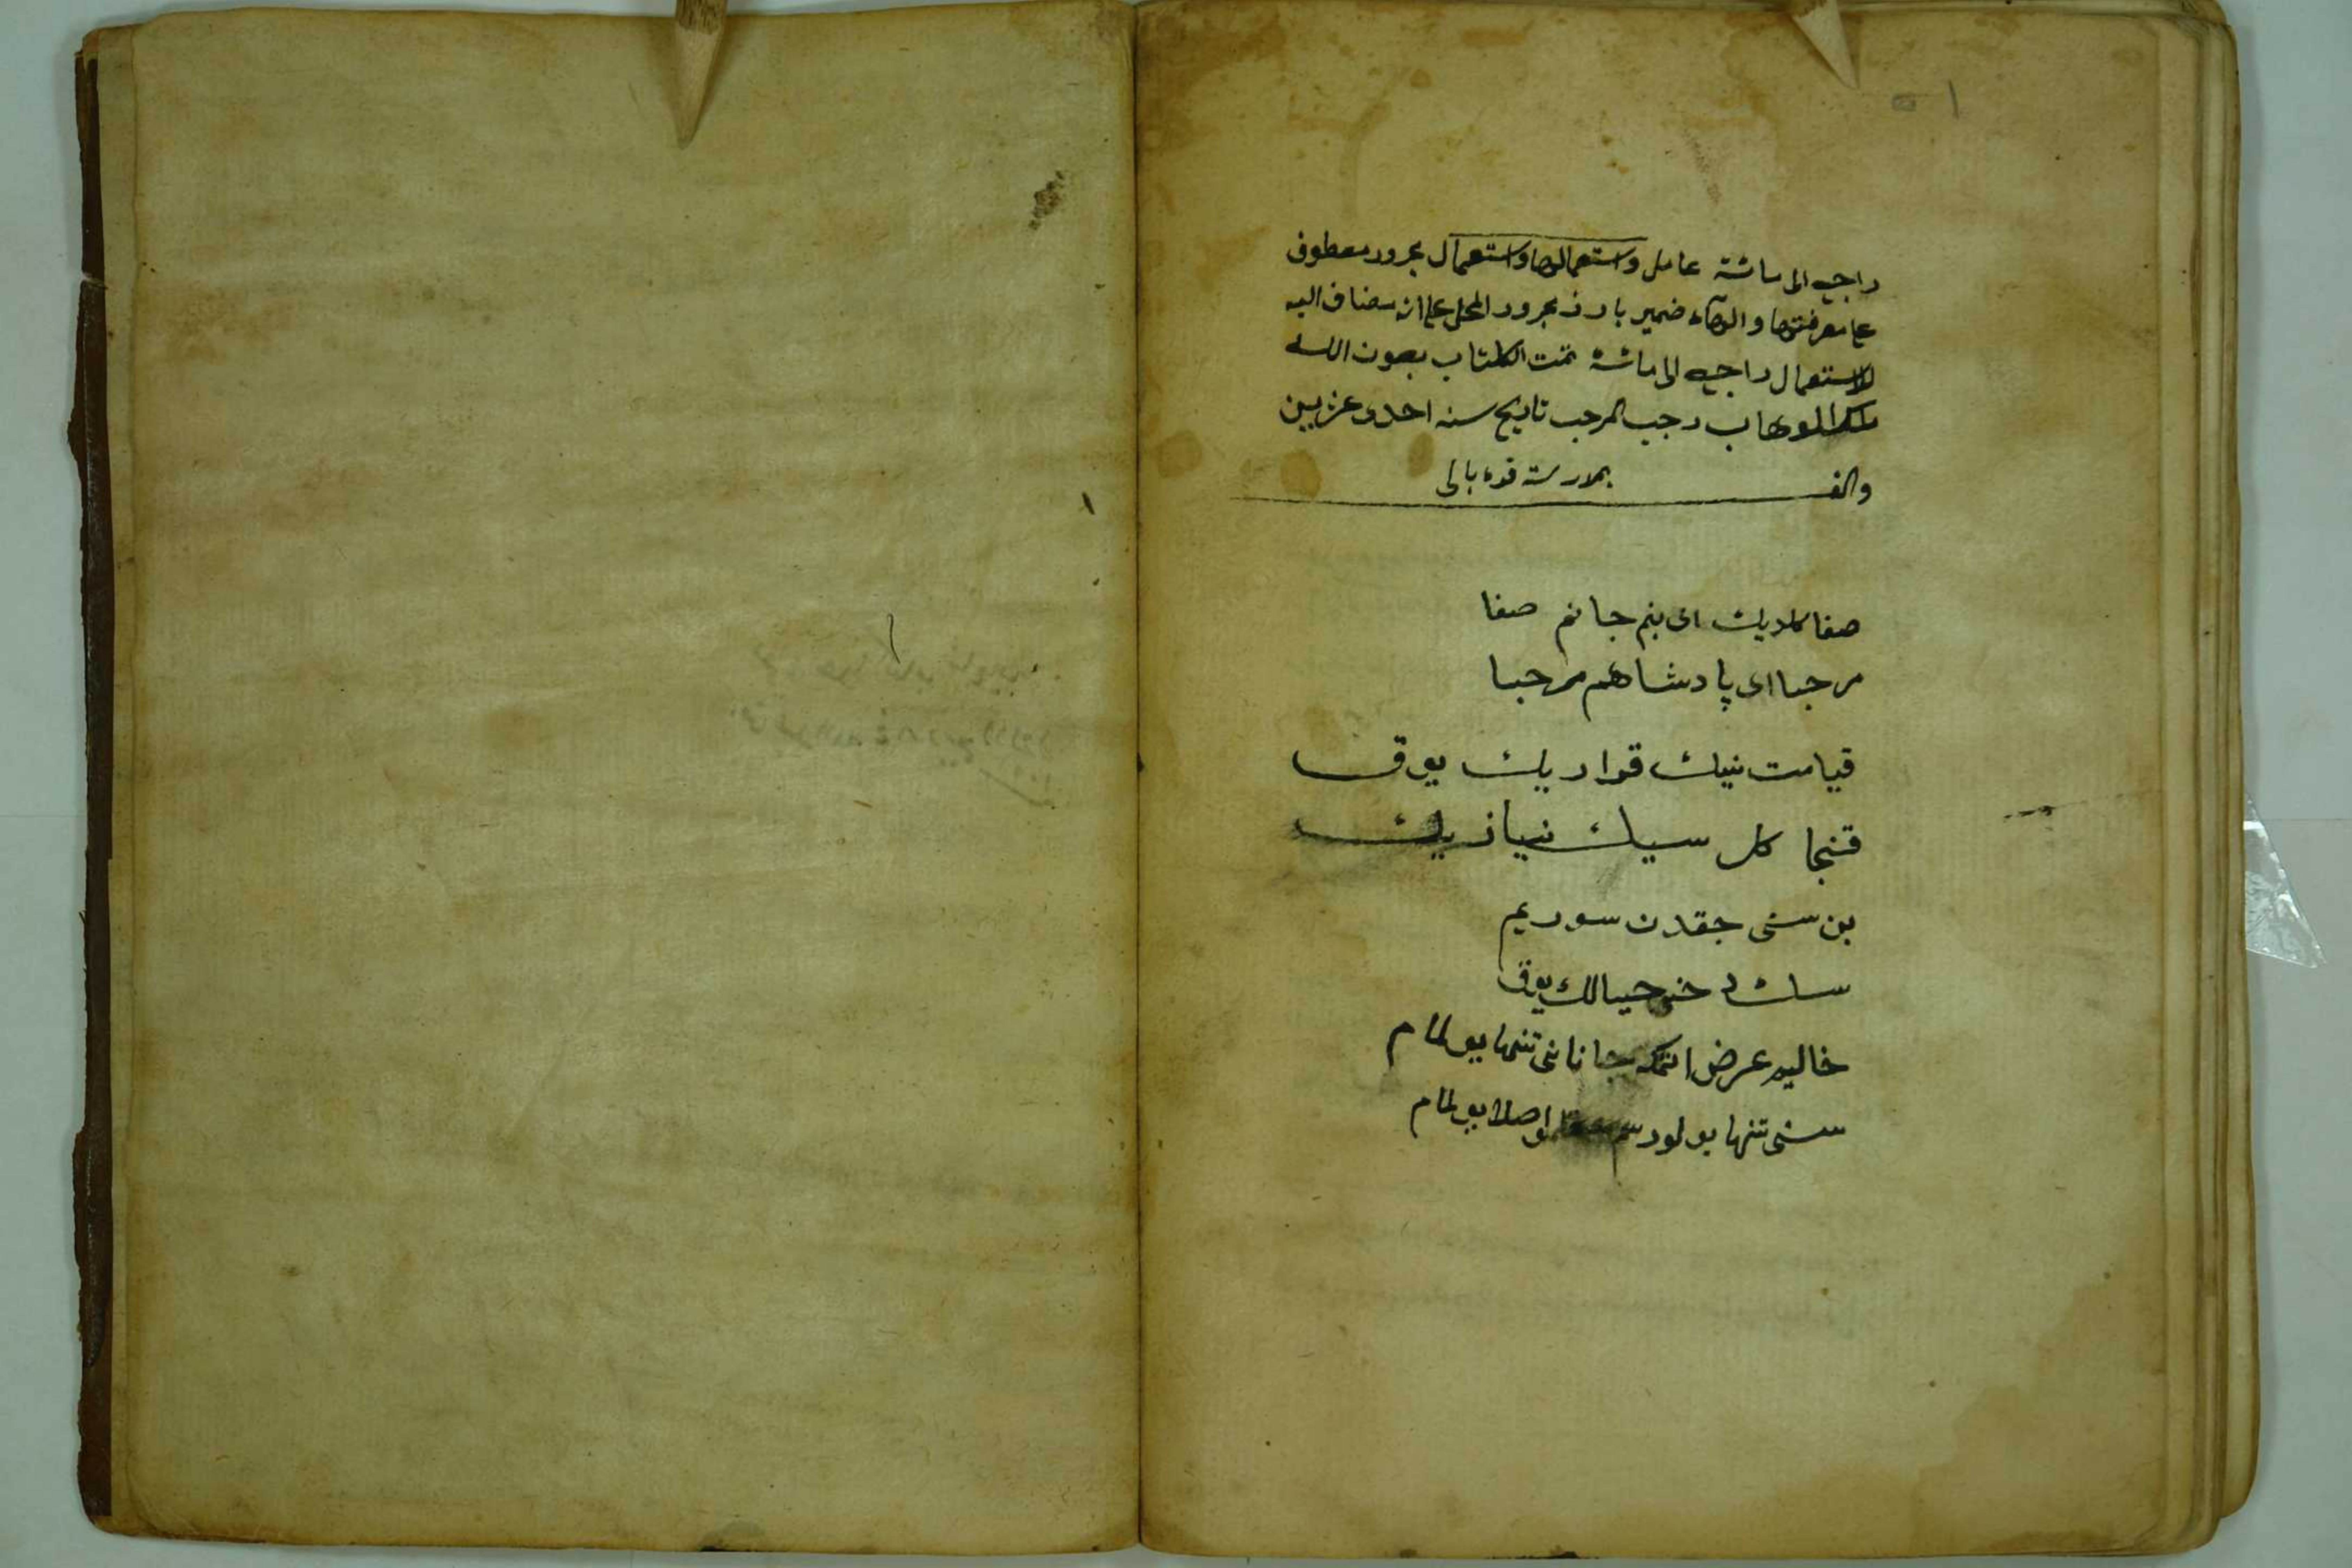 ٥١
راجع الى مائة عامل واستعمالها واستعمال مجرور معطوف
على معرفتها والهاء ضمير بارز مجرور المحل على انه مضاف اليه
للاستعمال راجع الى مائة تمت الكتاب بعون الله
ملك الوهاب رجب المرجب تاريخ سنه احدى عشرين
والف بمدرسة قره بالى
صفا كلديك اى بنم جانم صفا
مرحبا اى پادشاهم مرحبا
قيامت نيك قواريك يوق
قنجا كل سيك نيازيك
بن سنى جقدن سوريم
خبر يوق
خاليه عرض اتمكه جانانى تنها بولمام
سنى تنها بولورسم بولمام